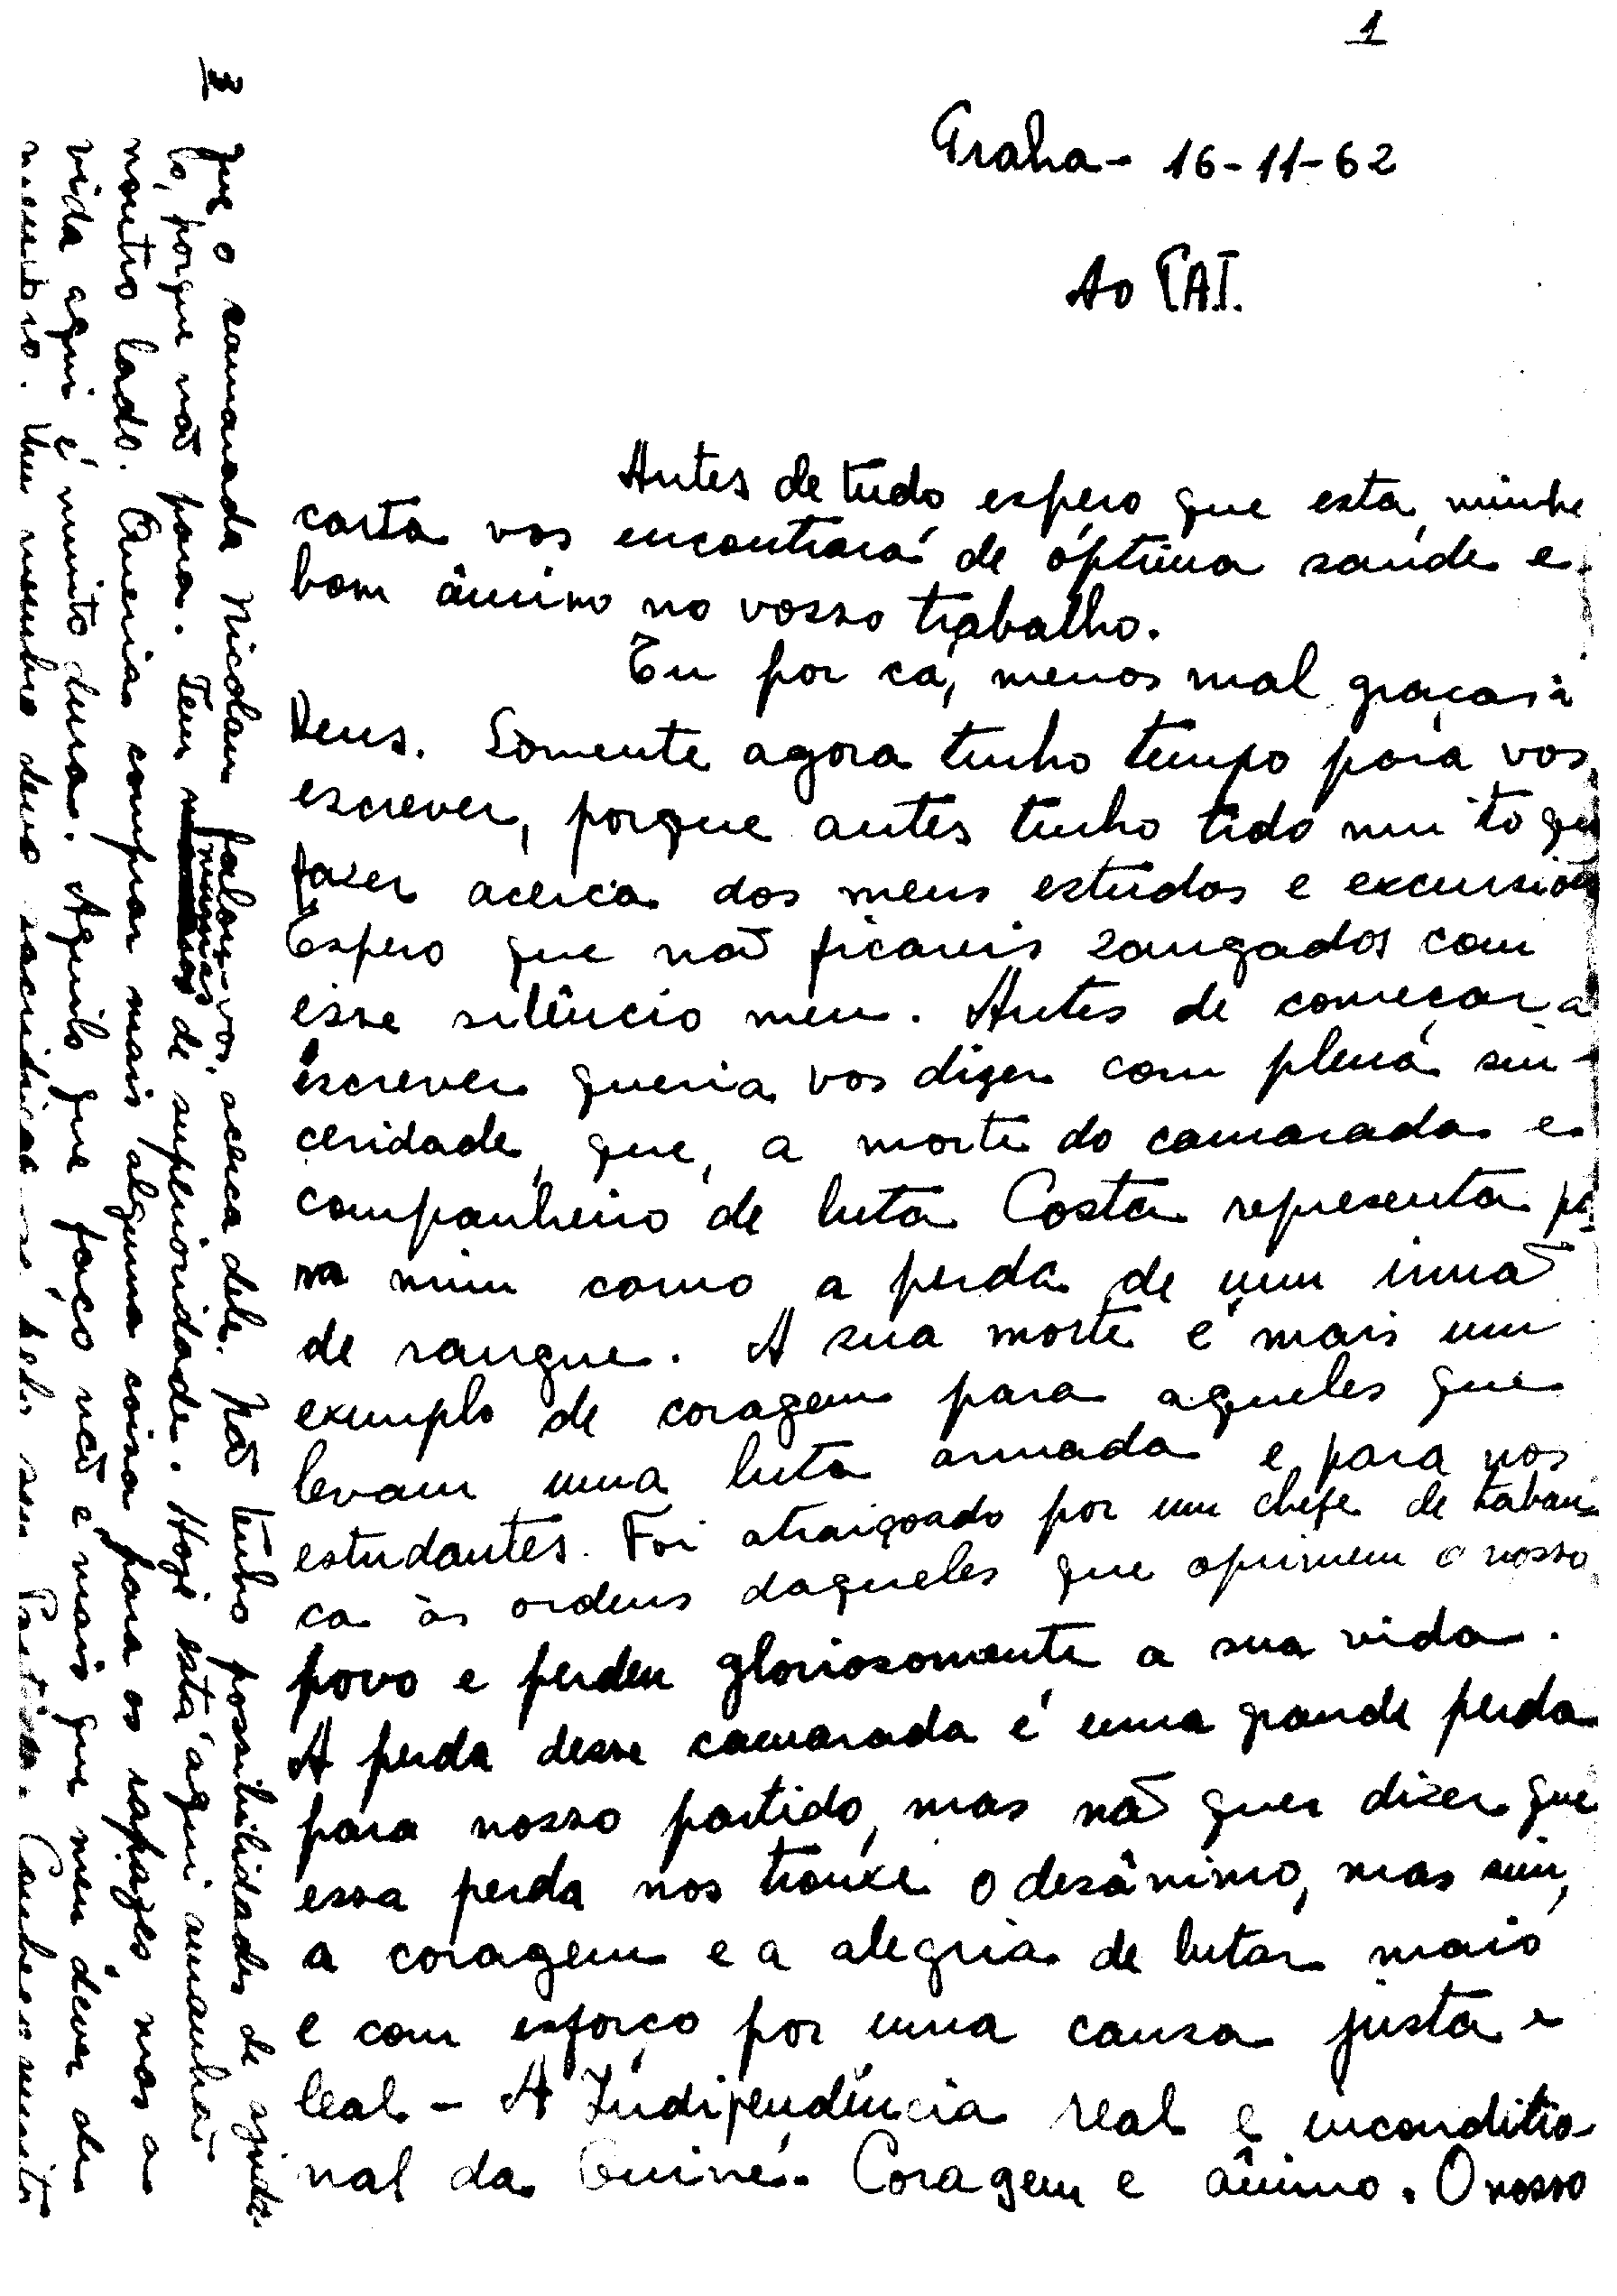 1
Praha - 16-11-62
Ao PAI.
Antes de tudo espero que esta minha
carta vos encontrará de óptima saúde e
bom ânimo no vosso trabalho.
Eu por cá, menos mal graças à
Deus. Somente agora tenho tempo para vos
escrever, porque antes tenho tido muito que
fazer acerca dos meus estudos e excursões
Espero que não ficareis zangados com
esse silêncio meu. Antes de começar a
escrever queria vos dizer com plena sin-
ceridade, que, a morte do camarada e
companheiro de luta Costa representa pa
ra mim como a perda de um irmão
de sangue. A sua morte é mais um
exemplo de coragem para aqueles que
levam uma luta armada e para nos
estudantes. Foi atraiçoado por um chefe de taban
ca às ordens daqueles que oprimem o nosso
povo e perdeu gloriosomente a sua vida.
A perda desse camarada é uma grande perda
para nosso partido, mas não quer dizer que
essa perda nos trouxe o desânimo, mas sim,
a coragem e a alegria de lutar mais
e com esforço por uma causa justa e
leal - A Indipendência real e inconditio
nal da Guiné. Coragem e ânimo. O nosso
3
que o camarada Nicolau falou-vos, acerca dele. Não tenho possibilidades de ajuda-
lo, porque não para. Tem manias de superioridade. Hoje está aqui amanhã
noutro lado. Queria comprar mais alguma coisa para os rapazes, mas a
vida aqui é muito dura. Aquilo que faço não é mais que meu dever de
membro. Um membro deve sacrificar-se pelo seu Partido. Conheço muito